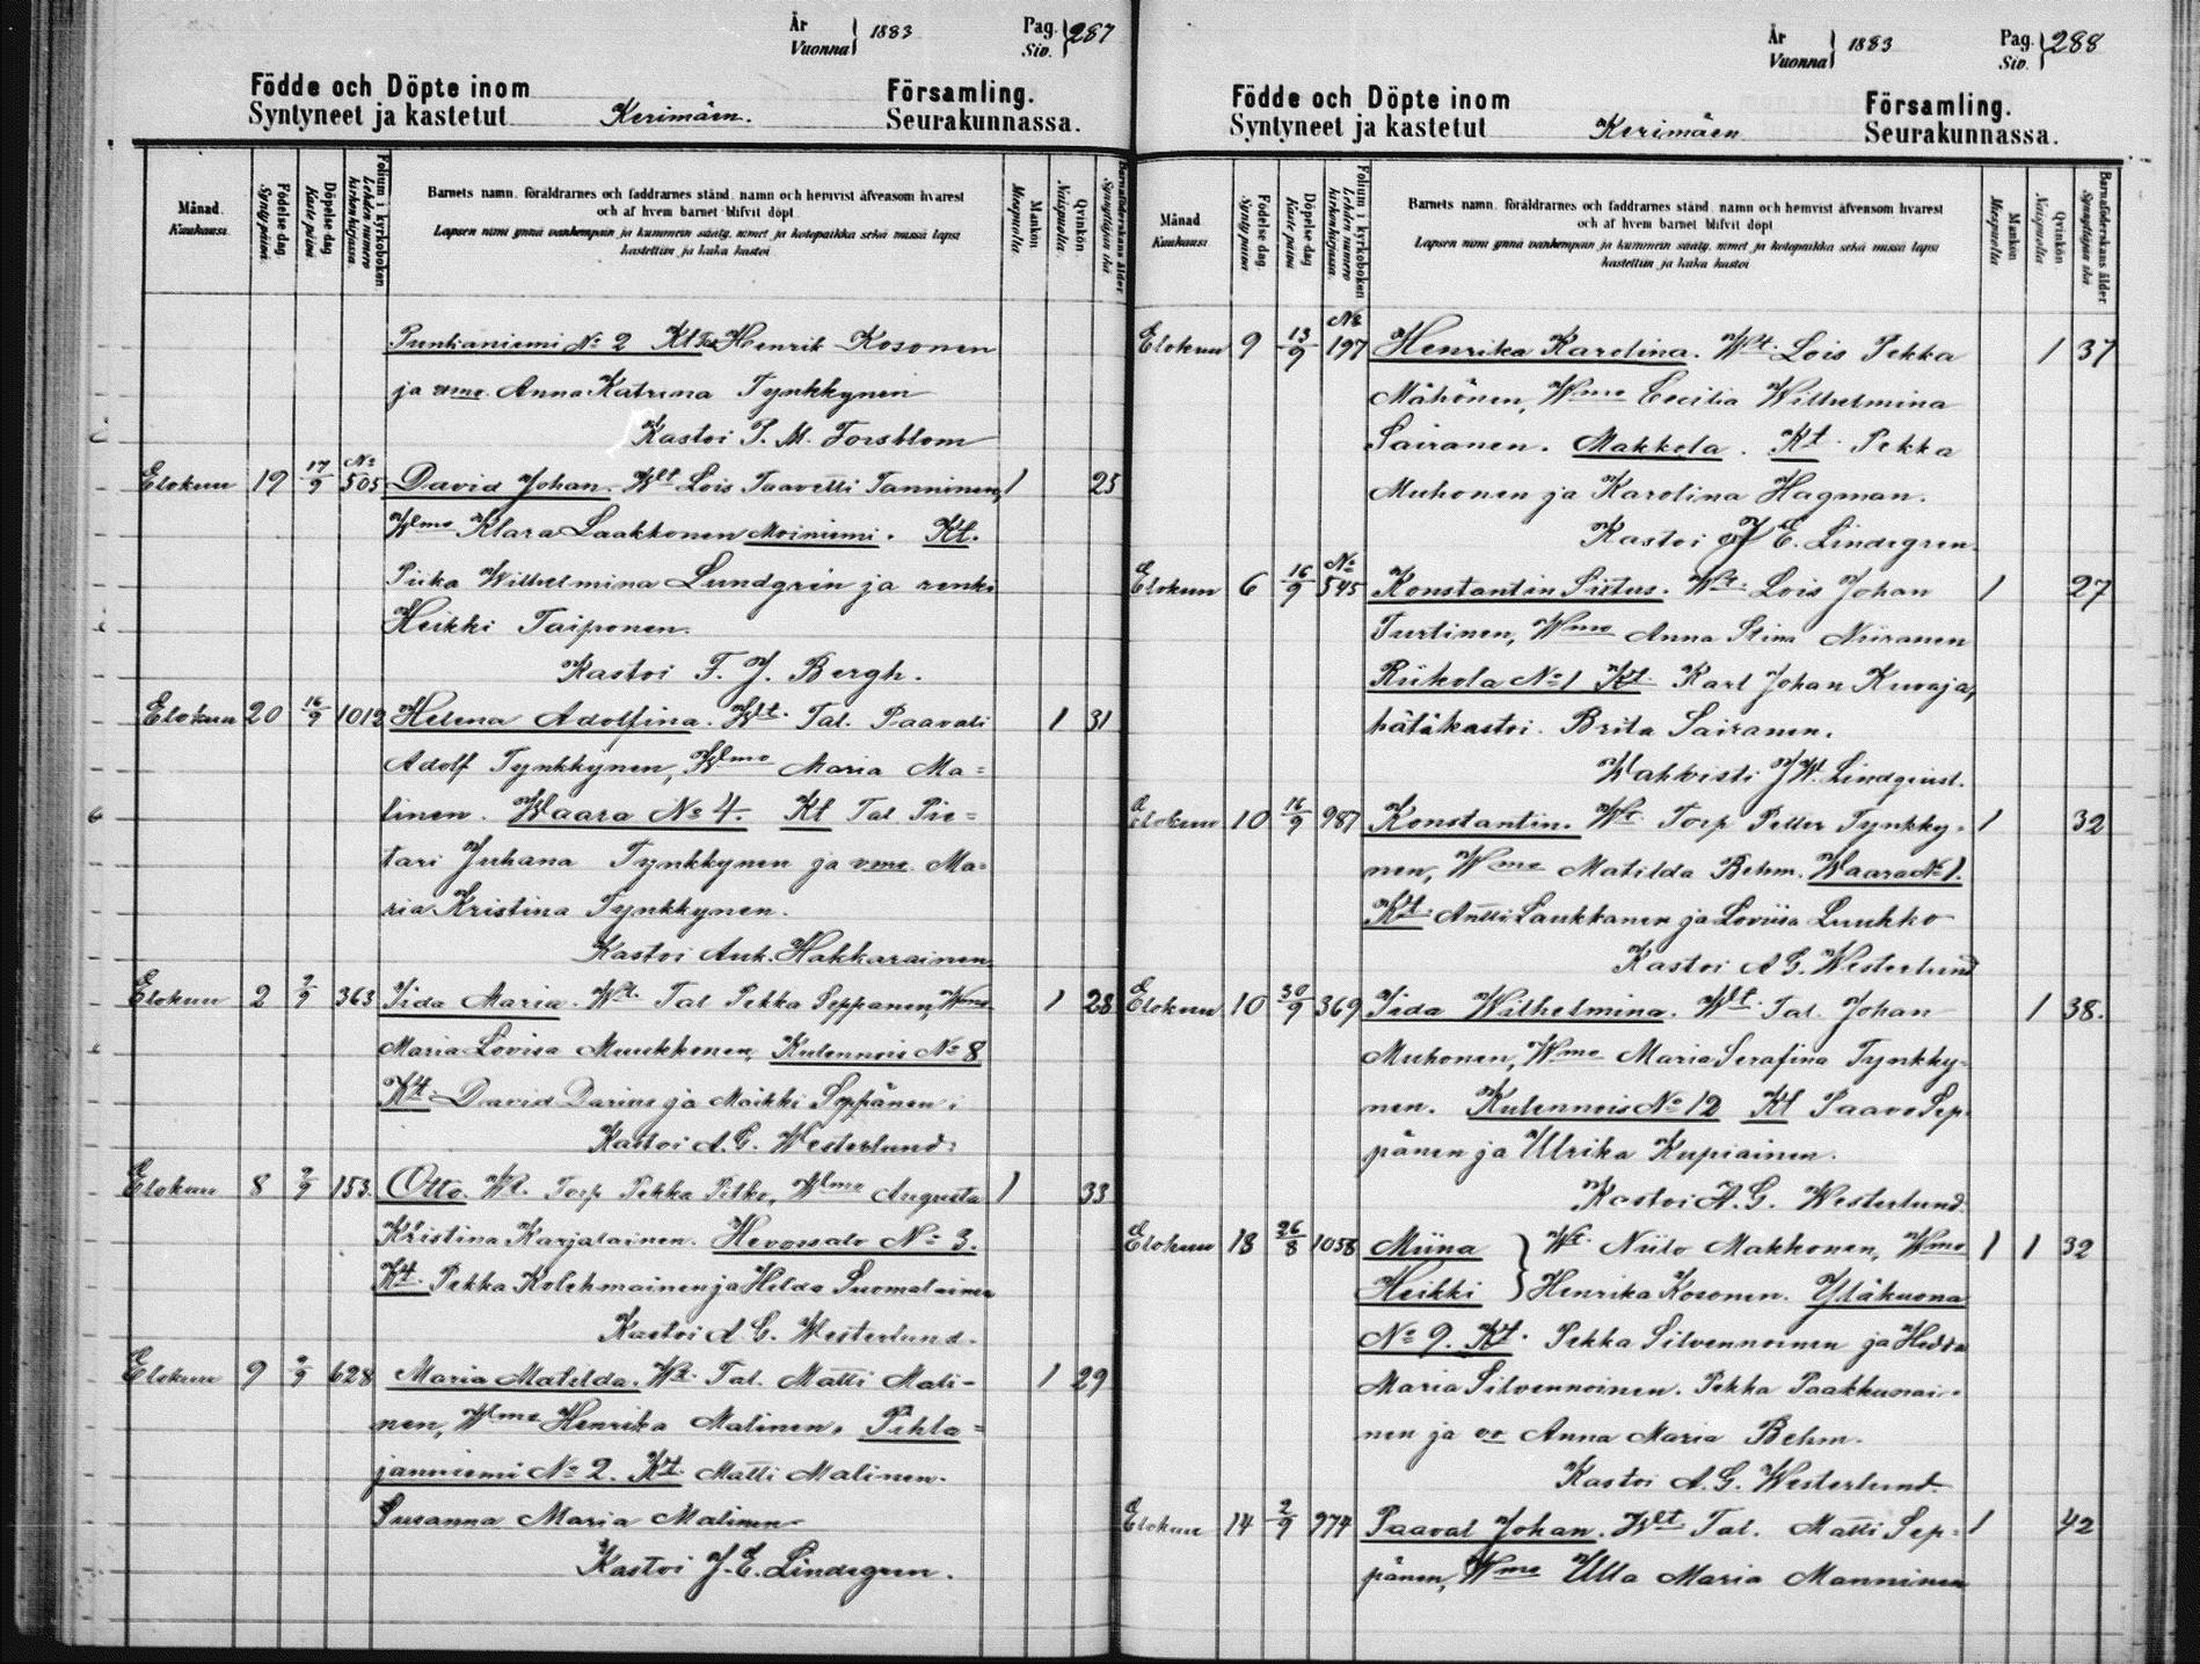 År
Vuonna } 1883
Pag.
Siv. } 287
Födde och Döpte inom
Syntyneet ja kastetut Kerimäen.
Församling.
Seurakunnassa.
Månad.
Kuukausi.
Födelse dag
Synty päivä.
Döpelse dag
Kaste päivä
Folium i kyrkoboken
Lehden numero
kirkonkirjassa.
Barnets namn, föräldrarnes och faddrarnes stånd, namn och hemvist äfvensom hvarest
och af hvem barnet blifvit döpt.
Lapsen nimi ynnä vanhempain ja kummein sääty, nimet ja kotopaikka sekä missä lapsi
kastettiin ja kuka kastoi
Mankön
Miespuolia
Qvinkön.
Naispuolia.
Barnaföderskans ålder
Synnyttäjän ikä
Punkaniemi No 2 Kt Henrik Kosonen
ja vmo. Anna Katrina Tynkkynen
Kastoi P. M. Forsblom
Elokuu 19 17/9 No 505 David Johan. Wlt Lois Taavetti Tanninen, 1 25
Wlmo Klara Laakkonen Moiniemi. Kt.
Piika Wilhelmina Lundgrén ja renki
Heikki Taiponen.
Kastoi F. J. Bergh.
Elokuu 20 16/9 1012 Helena Adolfina. Wlt. Tal. Paavali 1 31
Adolf Tynkkynen, Wlmo Maria Ma=
linen. Waara No 4. Kt Tal Pie=
tari Juhana Tynkkynen ja vmo. Ma=
ria Kristina Tynkkynen.
Kastoi Auk. Hakkarainen.
Elokuu 2 9/9 363 Iida Maria. Wlt. Tal Pekka Seppänen, Wmo 1 28
Maria Lovisa Muukkonen, Kulennois No 8
Kt. David Darius ja Maikki Seppänen.
Kastoi A. G. Westerlund.
Elokuu 8 9/9 153. Otto. Wt. Torp Pekka Pitko, Wlmo Augusta 1 33
Kristina Karjalainen. Hevossalo No 3.
Kt. Pekka Kolehmainen ja Hilda Suomalainen
Kastoi A. G. Westerlund.
Elokuu 9 9/9 628 Maria Matilda. Wlt. Tal. Matti Mali- 1 29
nen, Wlmo Henrika Malinen. Pihla=
janniemi No 2. Kt. Matti Malinen.
Susanna Maria Malinen
Kastoi J. E. Lindegren.
År
Vuonna } 1883
Pag.
Siv. } 288
Födde och Döpte inom
Syntyneet ja kastetut Kerimäen
Församling.
Seurakunnassa.
Månad
Kuukausi
Födelse dag
Synty päivä
Döpelse dag
Kaste päivä
Folium i kyrkoboken
Lehden numero
kirkonkirjassa
Barnets namn, föräldrarnes och faddrarnes stånd, namn och hemvist äfvensom hvarest
och af hvem barnet blifvit döpt
Lapsen nimi ynnä vanhempain ja kummein sääty, nimet ja kotopaikka sekä missä lapsi
kastettiin ja kuka kastoi
Mankön
Miespuolia
Qvinkön
Naispuolia
Barnaföderskans ålder
Synnyttäjän ikä
Elokuu 9 13/9 No 197 Henrika Karolina. Wlt. Lois Pekka 1 37
Mähönen, Wmo Cecilia Wilhelmina
Sairanen. Makkola. Kt. Pekka
Muhonen ja Karolina Hagman.
Kastoi J E. Lindegren.
Elokuu 6 16/9 No 545 Konstantin Siitus. Wlt. Lois Johan 1 27
Turtinen, Wmo Anna Stina Niiranen
Riikola No 1 Kt. Karl Johan Kuvaja,
hätäkastoi. Brita Sairanen.
Wahvisti J W. Lindqvist.
Elokuu 10 16/9 987 Konstantin. Wt. Torp Petter Tynkky- 1 32
nen, Wmo Matilda Behm. Waara No 1.
Kt. Antti Laukkanen ja Loviisa Luukko
Kastoi A G. Westerlund
Elokuu 10 30/9 369 Iida Wilhelmina. Wlt. Tal. Johan 1 38.
Muhonen, Wmo Maria Serafina Tynkky-
nen. Kulennois No 12 Kt Paavo Sep-
pänen ja Ulrika Kupiainen.
Kastoi A. G. Westerlund.
Elokuu 18 26/8 1058 Miina } Wt. Niilo Makkonen, Wmo 1 1 32
Heikki } Henrika Kosonen. Yläkuona
No 9. Kt. Pekka Silvennoinen ja Hedda
Maria Silvennoinen. Pekka Paakkunai-
nen ja vo Anna Maria Behm.
Kastoi A. G. Westerlund.
Elokuu 14 2/9 974 Paaval Johan. Wlt Tal. Matti Sep= 1 42
pänen, Wmo Ulla Maria Manninen